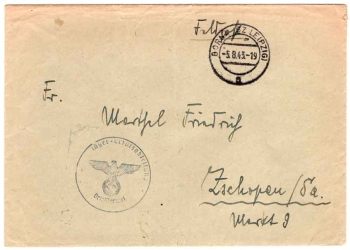 Feldpost
BORNA (BZ LEIPZIG)
-3.8.43.-19
a
Fr.
Marthel Friedrich
Zschopau/Sa.
Markt 9